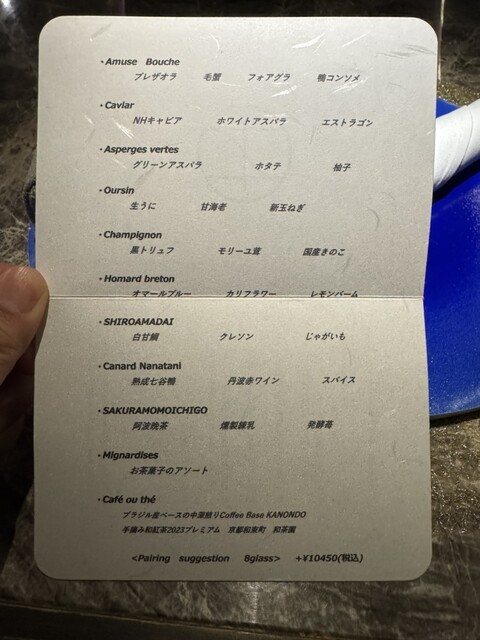 ・Amuse Bouche
ブレザオラ 毛蟹 フォアグラ 鴨コンソメ
・Caviar
NHキャビア ホワイトアスパラ エストラゴン
・Asperges vertes
グリーンアスパラ ホタテ 柚子
・Oursin
生うに 甘海老 新玉ねぎ
・Champignon
黒トリュフ モリーユ茸 国産きのこ
・Homard breton
オマールブルー カリフラワー レモンバーム
・SHIROAMADAI
白甘鯛 クレソン じゃがいも
・Canard Nanatani
熟成七谷鴨 丹波赤ワイン スパイス
・SAKURAMOMOICHIGO
阿波晩茶 燻製練乳 発酵苺
・Mignardises
お茶菓子のアソート
・Café ou thé
ブラジル産ベースの中深煎りCoffee Base KANONDO
手摘み和紅茶2023プレミアム 京都和束町 和茶園
<Pairing suggestion 8glass> +¥10450(税込)